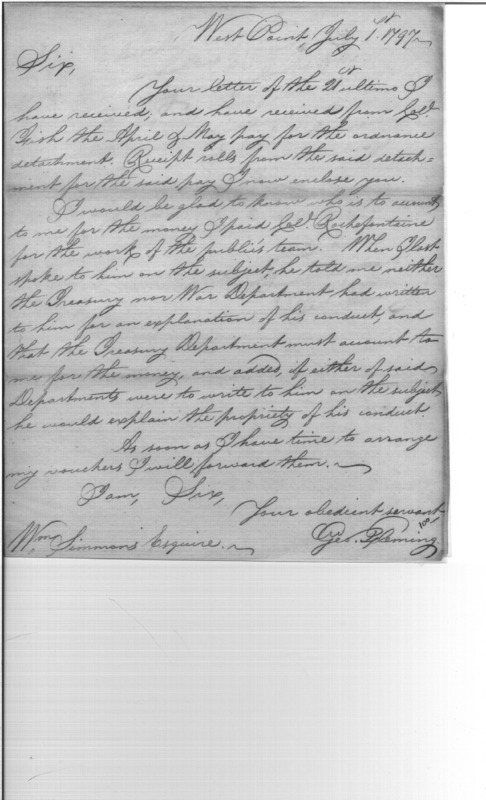 West Point, July 1st 1797
Sir,
Your letter of the 21st ultimo I
have received, and have received from Col.
the April & May pay for the ordnance
detachment; Receipt rolls from the said detach=
ment for the said pay I now enclose you.
I would be glad to know who is to account
to me for the money I paid Col. Rochefontaine
for the work of the public's team. When I last
spoke to him on the subject, he told me neither
the Treasury nor War Department had written
to him for an explanation of his conduct, and
that the Treasury Department must account to
me for the money, and added, if either of said
Departments were to write to him on the subject
he would explain the propriety of his conduct.
As soon as I have time to arrange
my vouchers I will forward them.
I am, Sir,
Your obedient servant
Geo. Fleming
Wm. Simmons Esquire.